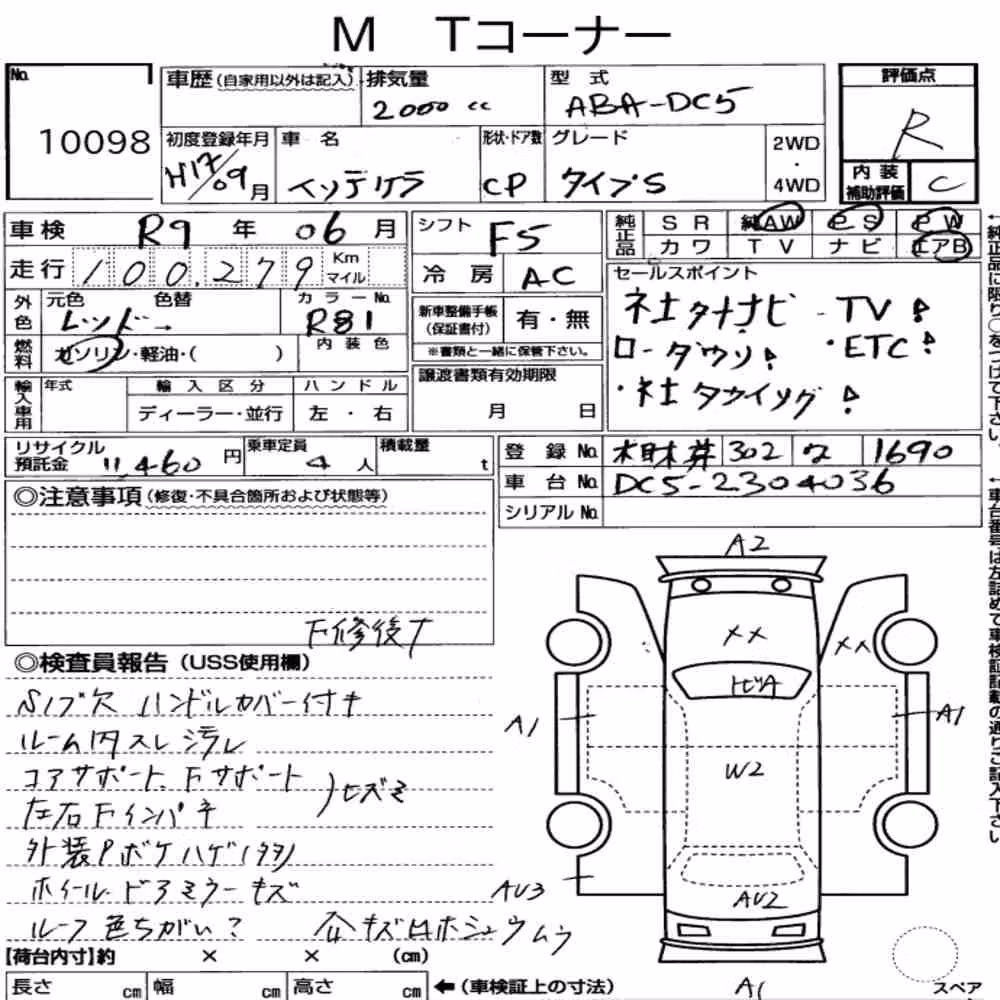 M Tコーナー
No. 10098
車歴(自家用以外は記入) 排気量 2000 cc 型式 ABA-DC5
初度登録年月 H17/09月 車名 インテグラ 形状・ドア数 CP グレード タイプS 2WD・4WD
評価点 R
内装補助評価 C
車検 R9年 06月 シフト F5
純正品 SR 純AW PS PW
カワ TV ナビ エアB
走行 100,279 Km マイル
冷房 AC
セールスポイント
社外ナビ・TV!
ローダウン! ・ETC!
・社外ウイング!
外色 元色 レッド 色替 → カラーNo. R81
新車整備手帳(保証書付) 有・無
※書類と一緒に保管下さい。
燃料 ガソリン・軽油・( ) 内装色
譲渡書類有効期限 月 日
輸入車用 年式 輸入区分 ハンドル
ディーラー・並行 左・右
リサイクル預託金 11,460円 乗車定員 4人 積載量 t
登録No. 302 1690
車台No. DC5-2304036
シリアルNo.
◎注意事項(修復・不具合箇所および状態等)
F修復イ
◎検査員報告(USS使用欄)
Sノブ欠 ハンドルカバー付キ
ルーム内スレ汚レ
コアサポート、Fサポート
左右Fインパネ )ヒズミ
外装Pボケハゲ(タタ)
ホイール・ドアミラーキズ
ルーフ色ちがい?
A2
XX XX
トビA
A1 A1
W2
AU3 AU2
A1
【荷台内寸】約 × × (cm)
長さ cm 幅 cm 高さ cm ←(車検証上の寸法)
スペア
←純正品に限り○をつけて下さい。
←車台番号は左詰めで車検証記載の通りご記入下さい